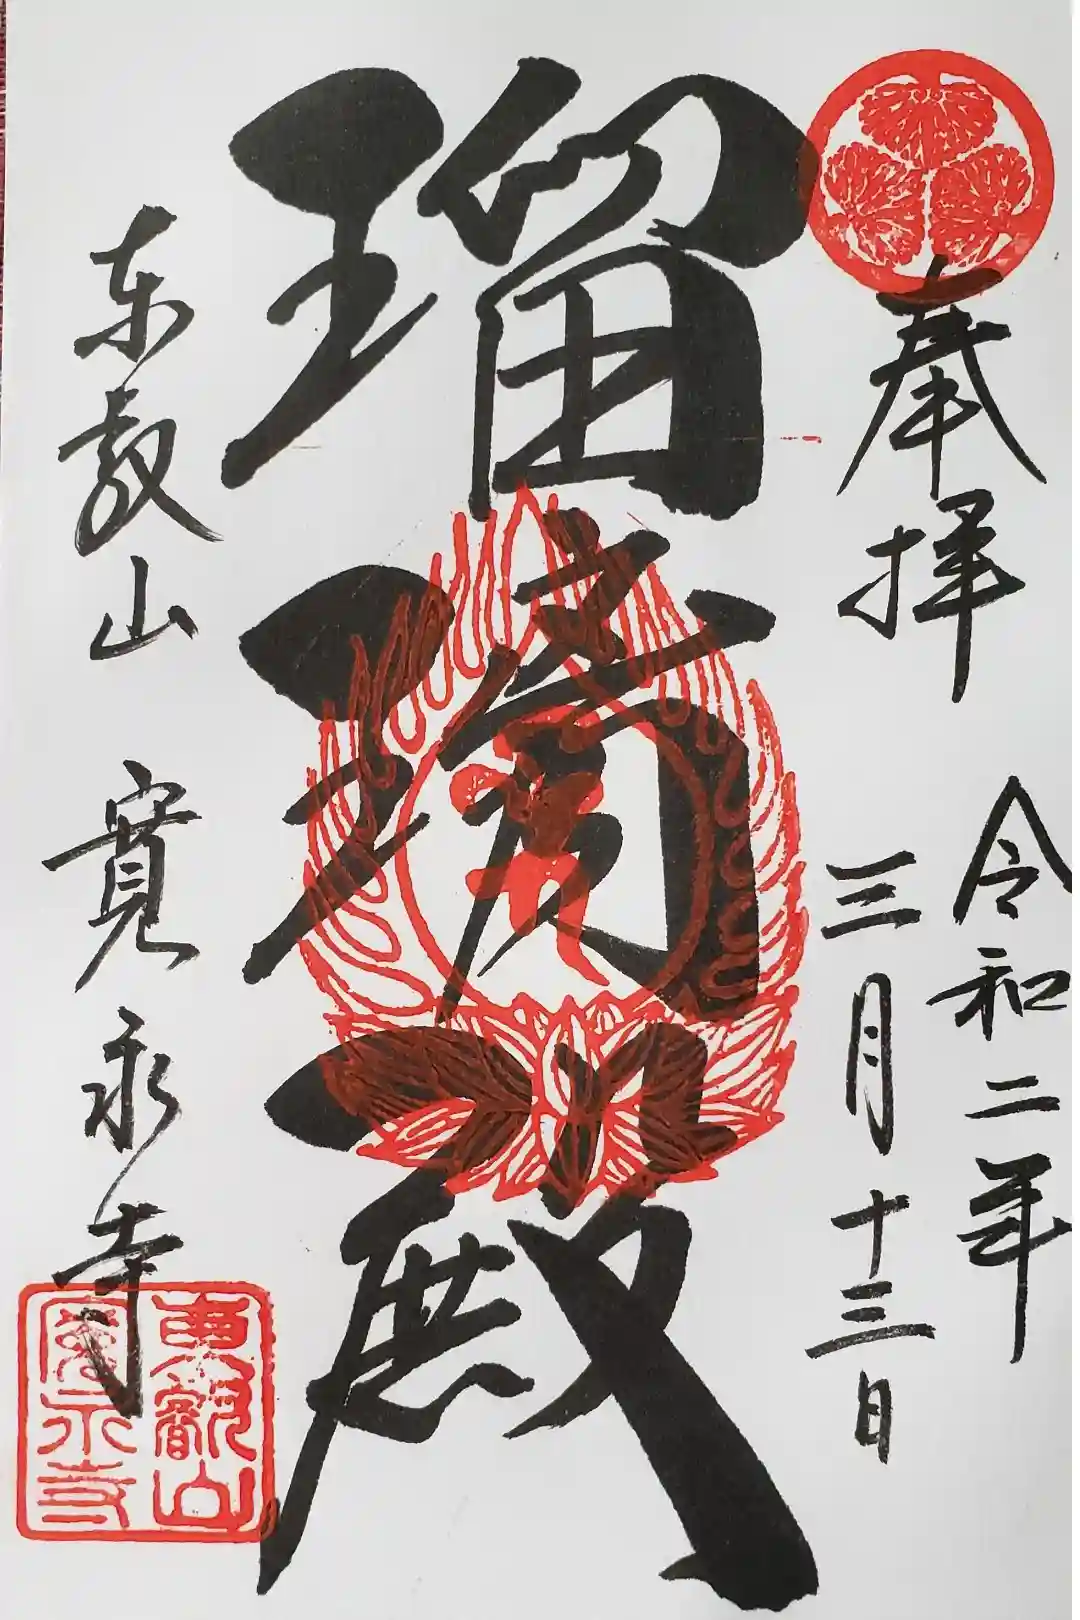 奉拝
令和二年
三月十三日
瑠璃殿
東叡山 寛永寺
東叡山
寛永寺